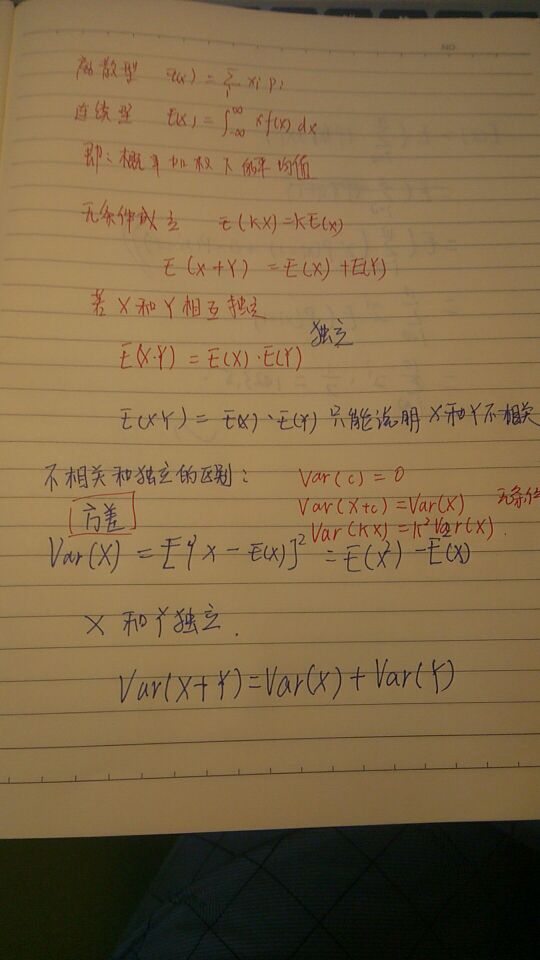 离散型 E(x) = ∑i xi pi
连续型 E(x) = ∫-∞^∞ x f(x) dx
即：概率加权下的平均值
无条件成立 E(kX)=kE(x)
E(X+Y) = E(X)+E(Y)
若X和Y相互独立
E(X·Y) = E(X)·E(Y) 独立
E(XY) = E(X)·E(Y) 只能说明X和Y不相关
不相关和独立的区别：
Var(c) = 0
Var(X+c) = Var(X) 无条件
Var(kX) = k²Var(X).
方差
Var(X) = E[X - E(X)]² = E(X²) - E(X)
X和Y独立.
Var(X+Y)=Var(X)+Var(Y)